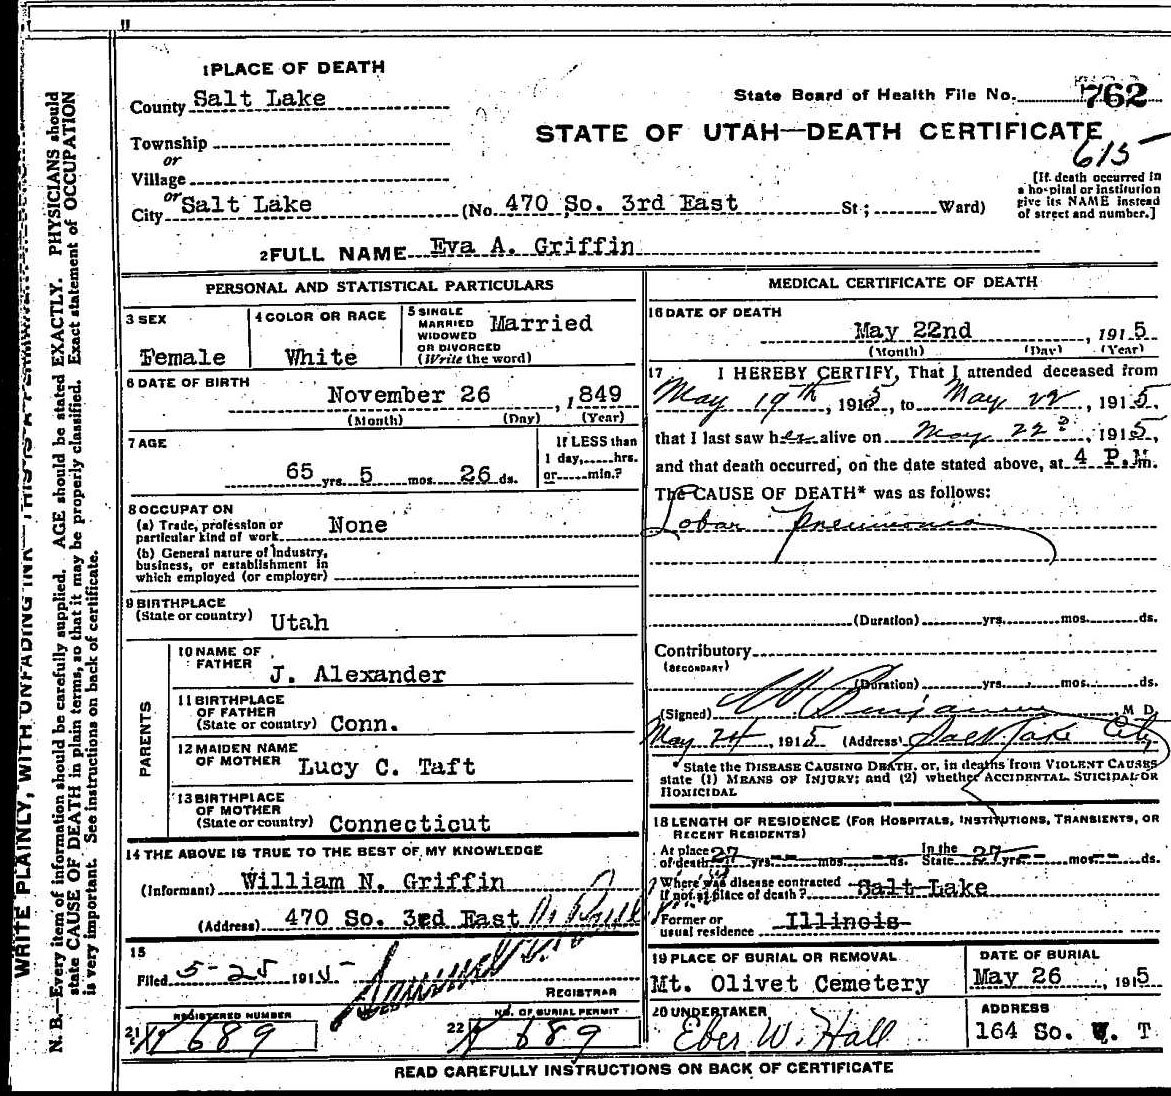 1 PLACE OF DEATH
County Salt Lake
State Board of Health File No. 762
STATE OF UTAH—DEATH CERTIFICATE
615
Township
or
Village
or
City Salt Lake (No. 470 So. 3rd East St; Ward)
[If death occurred in
a hospital or institution
give its NAME instead
of street and number.]
2 FULL NAME Eva A. Griffin
PERSONAL AND STATISTICAL PARTICULARS
3 SEX
Female
4 COLOR OR RACE
White
5 SINGLE
MARRIED
WIDOWED
OR DIVORCED
(Write the word)
Married
6 DATE OF BIRTH
November 26, 1849
(Month) (Day) (Year)
7 AGE
65 yrs. 5 mos. 26 ds.
If LESS than
1 day,.....hrs.
or.....min.?
8 OCCUPATION
(a) Trade, profession or
particular kind of work None
(b) General nature of Industry,
business, or establishment in
which employed (or employer)
9 BIRTHPLACE
(State or country) Utah
PARENTS
10 NAME OF
FATHER J. Alexander
11 BIRTHPLACE
OF FATHER
(State or country) Conn.
12 MAIDEN NAME
OF MOTHER Lucy C. Taft
13 BIRTHPLACE
OF MOTHER
(State or country) Connecticut
14 THE ABOVE IS TRUE TO THE BEST OF MY KNOWLEDGE
(Informant) William N. Griffin
(Address) 470 So. 3rd East
15
Filed 5-25 1915
REGISTRAR
21 REGISTERED NUMBER
689
22 NO. OF BURIAL PERMIT
689
MEDICAL CERTIFICATE OF DEATH
16 DATE OF DEATH
May 22nd, 1915
(Month) (Day) (Year)
17 I HEREBY CERTIFY, That I attended deceased from
May 19th, 1915, to May 22, 1915,
that I last saw her alive on May 22, 1915,
and that death occurred, on the date stated above, at 4 P.M.
The CAUSE OF DEATH* was as follows:
Lobar Pneumonia
(Duration) yrs. mos. ds.
Contributory
(SECONDARY)
(Duration) yrs. mos. ds.
(Signed) M D.
May 24, 1915 (Address) Salt Lake City
* State the DISEASE CAUSING DEATH, or, in deaths from VIOLENT CAUSES
state (1) MEANS OF INJURY; and (2) whether ACCIDENTAL SUICIDAL OR
HOMICIDAL
18 LENGTH OF RESIDENCE (FOR HOSPITALS, INSTITUTIONS, TRANSIENTS, OR
RECENT RESIDENTS)
At place In the
of death 27 yrs. -- mos. -- ds. State 27 yrs. -- mos. -- ds.
Where was disease contracted
if not at place of death? Salt Lake
Former or
usual residence Illinois
19 PLACE OF BURIAL OR REMOVAL
Mt. Olivet Cemetery
DATE OF BURIAL
May 26, 1915
20 UNDERTAKER
Eber W. Hall
ADDRESS
164 So. W. T
READ CAREFULLY INSTRUCTIONS ON BACK OF CERTIFICATE
WRITE PLAINLY, WITH UNFADING INK—THIS IS A PERMANENT RECORD
N. B.—Every item of information should be carefully supplied. AGE should be stated EXACTLY. PHYSICIANS should
state CAUSE OF DEATH in plain terms, so that it may be properly classified. Exact statement of OCCUPATION
is very important. See instructions on back of certificate.